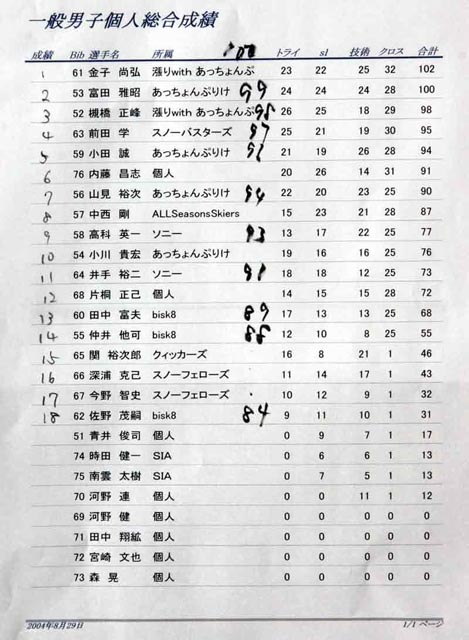 一般男子個人総合成績
成績 Bib 選手名 所属 トライ sl 技術 クロス 合計
1 61 金子 尚弘 漲りwith あっちょんぶ 100 23 22 25 32 102
2 53 富田 雅昭 あっちょんぶりけ 99 24 24 24 28 100
3 52 槻橋 正峰 漲りwith あっちょんぶ 98 26 25 18 29 98
4 63 前田 学 スノーバスターズ 97 25 21 19 30 95
5 59 小田 誠 あっちょんぶりけ 21 19 26 28 94
6 76 内藤 昌志 個人 20 26 14 31 91
7 56 山見 裕次 あっちょんぶりけ 94 22 20 23 25 90
8 57 中西 剛 ALLSeasonsSkiers 15 23 21 28 87
9 58 高科 英一 ソニー 93 13 17 22 25 77
10 54 小川 貴宏 あっちょんぶりけ 19 16 16 25 76
11 64 井手 裕二 ソニー 91 18 18 12 25 73
12 68 片桐 正己 個人 14 15 15 28 72
13 60 田中 富夫 bisk8 89 17 13 13 25 68
14 55 仲井 他可 bisk8 88 12 10 8 25 55
15 65 関 裕次郎 クィッカーズ 16 8 21 1 46
16 66 深浦 克己 スノーフェローズ 11 14 17 1 43
17 67 今野 智史 スノーフェローズ 10 12 9 1 32
18 62 佐野 茂嗣 bisk8 84 9 11 10 1 31
51 青井 俊司 個人 0 9 7 1 17
74 時田 健一 SIA 0 6 6 1 13
75 南雲 太樹 SIA 0 7 5 1 13
70 河野 連 個人 0 0 11 1 12
69 河野 健 個人 0 0 0 0 0
71 田中 翔紘 個人 0 0 0 0 0
72 宮崎 文也 個人 0 0 0 0 0
73 森 晃 個人 0 0 0 0 0
2004年8月29日 1/1 ページ